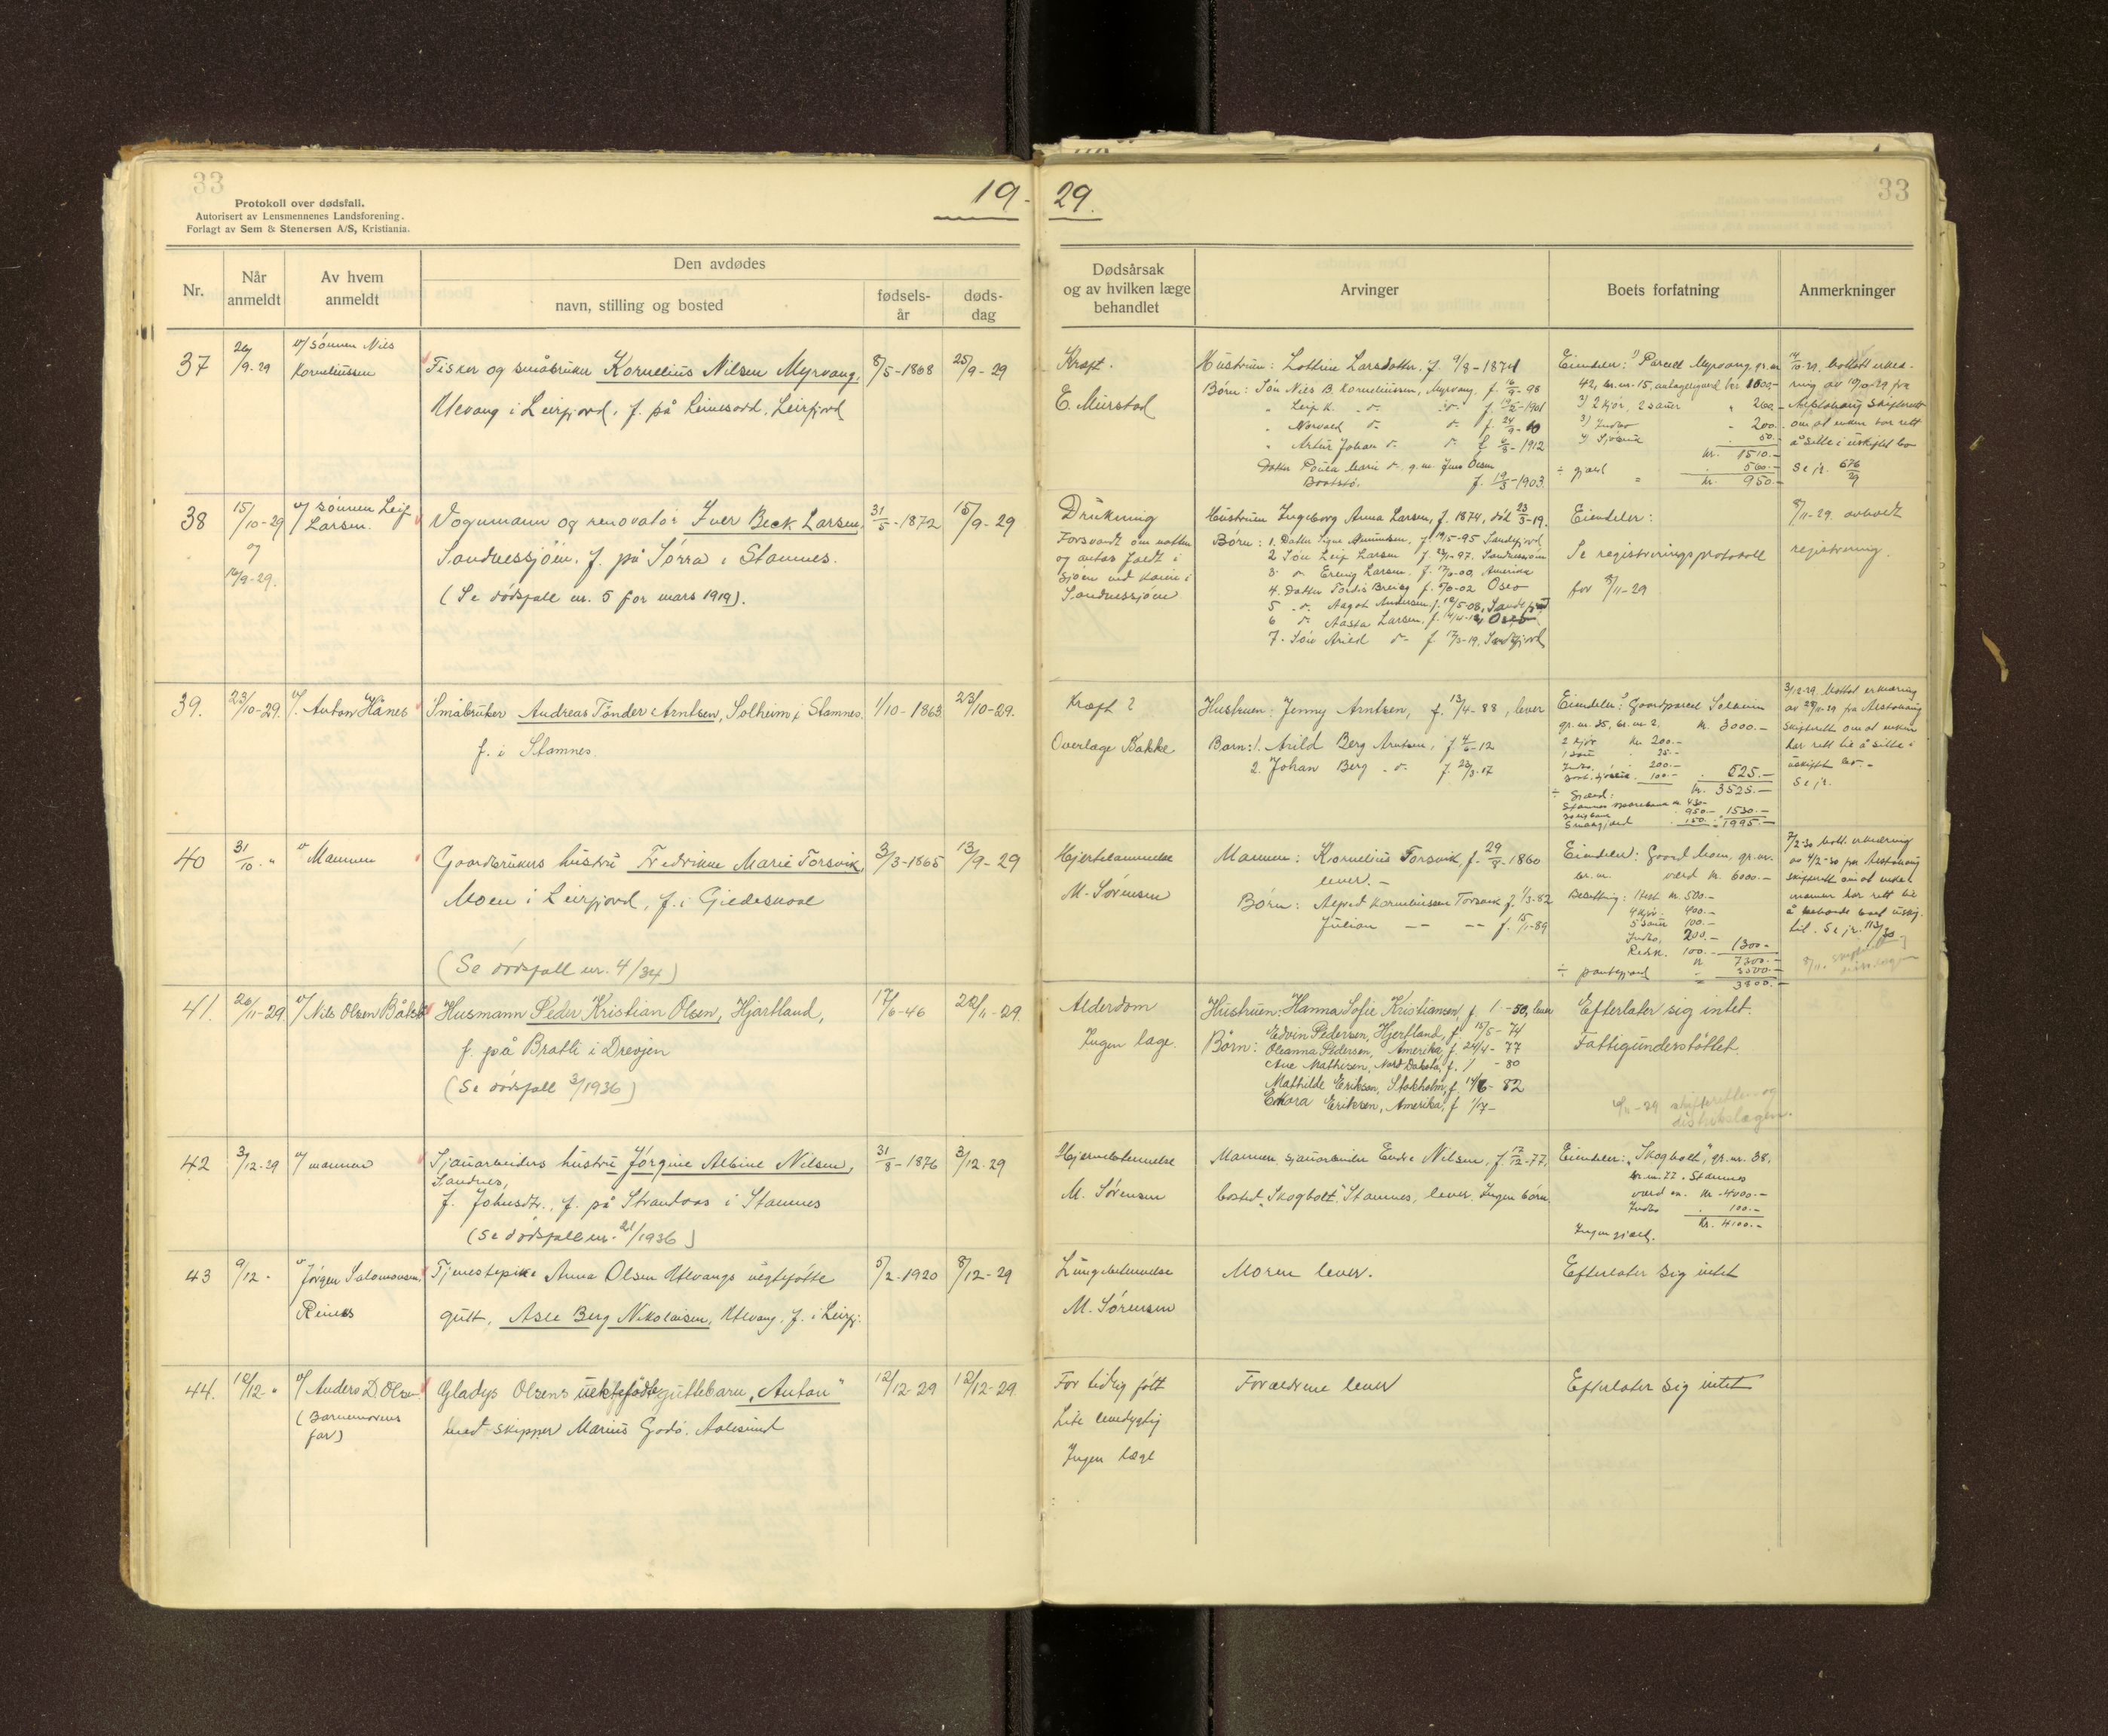 33
Protokoll over dødsfall.
Autorisert av Lensmennenes Landsforening.
Forlagt av Sem & Stenersen A/S, Kristiania.
19-29.
33
Nr.
Når anmeldt
Av hvem anmeldt
Den avdødes
navn, stilling og bosted
fødselsår
dødsdag
Dødsårsak og av hvilken læge behandlet
Arvinger
Boets forfatning
Anmerkninger
37
26/9-29
v/ sønnen Nils
Korneliussen
Fisker og småbruker Kornelius Nilsen Myrvang,
Ulvang i Leirfjord, f. på Leinesodd, Leirfjord
8/5-1868
25/9-29
Kræft.
E. Murstad
Hustruen: Lottine Larsdatter, f. 9/8-1871
Børn: Søn Nils B. Korneliussen, Myrvang, f.
" Leif K. do. do. f. -1901
" Norvald do. do. f.
" Artur Johan do. do. f. -1912
Datter Paula Marie do. g.m. Jens Olsen
f. 19/3-1903.
Eiendeler: 1) Parcel Myrvang, gr.nr.
42, br.nr. 15, antageligverd kr. 1000.-
2) 2 kjør, 2 sauer " 260.-
3) Indbo " 200.-
50.-
kr. 1510.-
÷ gjæld 560.-
" kr. 950.-
14/10-29. Mottatt erklæ-
ring av 10/10-29 fra
Alstahaug skifterett
om at enken har rett
å sitte i uskiftet bo
Se jr. 676/29
38
15/10-29
og
16/9-29.
v/ sønnen Leif
Larsen.
Vognmann og renovatør Iver Beck Larsen,
Sandnessjøen, f. på Sørra i Stamnes.
(Se dødsfall nr. 5 for mars 1919).
31/5-1872
15/9-29
Drukning
Forsvandt om natten
og antas faldt i
sjøen ved kaien i
Sandnessjøen
Hustruen Ingeborg Anna Larsen, f. 1874, død 23/3-19.
Børn: 1. Datter Signe Amundsen, f. 19/5-95 Sandefjord
2 Søn Leif Larsen f. -97. Sandnessjøen
3 do Erling Larsen. f. -00, Amerika
4. Datter Tordis Breivg f. -02 Oslo
5 do. Aagot Andersen, f. 12/5-08, Sandefjord
6 do Aasta Larsen, f. Oslo
7. Søn Arild do f. 17/3-19. Sandefjord
Eiendeler:
Se registreringsprotokoll
for 8/11-29
8/11-29 avholdt
registrering.
39.
23/10-29.
v/ Anton Hånes
Småbruker Andreas Tønder Arntsen, Solheim i Stamnes,
f. i Stamnes.
1/10-1863
23/10-29.
Kræft ?
Overlæge Bakke
Hustruen: Jenny Arntsen, f. 13/4-88, lever
Barn: 1. Arild Berg Arntsen, f. -12
2. Johan Berg do. f. 23/3-17
Eiendeler: Gaardparcel Solheim
gr.nr. 25, br.nr. 2, kr. 3000.-
2 kjør kr. 200.-
1 sau 25.-
Indbo, 200.-
100.- 525.-
kr. 3525.-
÷ Gjæld:
Stamnes sparebank kr. 430.-
950.- 1530.-
Smaagjæld 150.- 1995.-
3/12-29 Mottat erklæring
av 28/11-29 fra Alstahaug
skifterett om at enken
har rett til å sitte i
uskiftet bo.-
Se jr.
40
31/10 "
v Mannen
Gaardbrukers hustru Fredrikke Marie Forsvik,
Moen i Leirfjord, f. i Gildeskaal
(Se dødsfall nr. 4/34)
3/3-1865
13/9-29
Hjertelammelse
M. Sørensen
Mannen: Kornelius Forsvik f. 29/8-1860
lever.-
Børn: Alfred Korneliussen Forsvik f. 1/3-82
Julian -- -- f. 15/1-89
Eiendeler: Gaard Moen, gr.nr.
br.nr. værd kr. 6000.-
Besetting: 1 hest kr. 500.-
4 kjør 400.-
5 sauer 100.-
Indbo. 200.-
Redsk. 100.- 1300.-
kr 7300.-
÷ pantegjæld 3500.-
" 3800.-
7/2-30 mott. erklæring
av 4/2-30 fra Alstahaug
skifterett om at
mannen har rett til
å beholde boet uskif-
tet. Se jr. 113/30
41.
26/11-29.
v/ Nils Olsen
Husmann Peder Kristian Olsen, Hjartland,
f. på Bratli i Drevjen
(Se dødsfall 3/1936)
17/6-46
22/11-29.
Alderdom
Ingen læge.
Hustruen: Hanna Sofie Kristiansen, f. -50, lever
Børn: Edvin Pedersen, Hjertland, f. 15/5-74
Oleanna Pedersen, Amerika, f. 24/4-77
Ane Mathisen, Nord Dakota, f. / -80
Mathilde Eriksen, Stokholm, f. -82
Eriksen, Amerika, f. 1/7-
Efterlater sig intet.
Fattigunderstøttet.
-29 skifteretten og
distriktslægen.
42
3/12-29
v/ mannen
Sjauarbeiders hustru Jørgine Albine Nilsen,
Sandnes,
f. Johnsdtr., f. på Strandaas i Stamnes
(Se dødsfall nr. 21/1936)
31/8-1876
3/12-29
Hjernebetennelse
M. Sørensen
Mannen sjauarbeider Endre Nilsen, f. 17/12-77,
bosted "Skogholt", Stamnes, lever. Ingen børn
Eiendeler: "Skogholt", gr.nr. 38,
br.nr. 77 i Stamnes
værd en. kr. 4000.-
Indbo 100.-
kr. 4100.-
Ingen gjæld.
43
9/12 -
v Jørgen Salomonsen,
Reines
Tjenestepike Anna Olsen Ulvangs uegtefødte
gutt, Asle Berg Nikolaisen, Ulvang. f. i Leirfj.
5/2-1920
8/12-29
Lungebetennelse
M. Sørensen
Moren lever.
Efterlater sig intet
44.
12/12 "
v/ Anders D. Olsen
(Barnemorens
far)
Gladys Olsens uektefødte guttebarn "Anton"
med skipper Marius Godø, Aalesund
12/12-29
12/12-29
For tidlig født
Lite levedygtig
Ingen læge
Forældrene lever
Efterlater sig intet